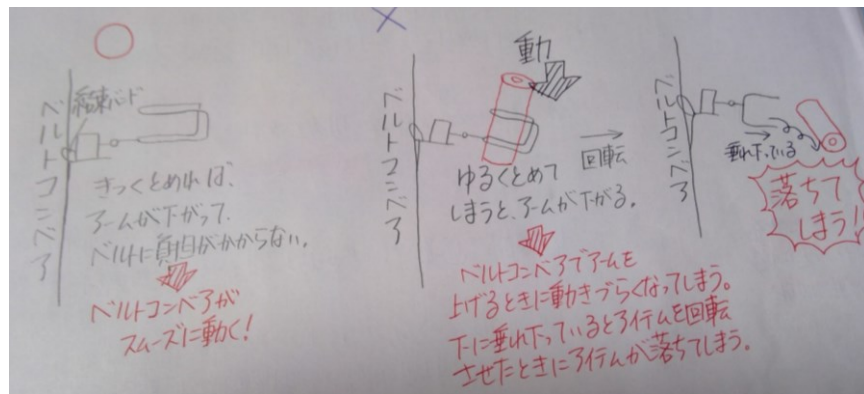 ベルトコンベア
結束バンド
きつくとめれば、
アームが下がって、
ベルトに負担がかからない。
ベルトコンベアが
スムーズに動く!
ベルトコンベア
動力
ゆるくとめて
しまうと、アームが下がる。
回転
ベルトコンベアでアームを
上げるときに動きづらくなってしまう。
下に垂れ下っているとアイテムを回転
させたときにアイテムが落ちてしまう。
ベルトコンベア
垂れ下っている
落ちて
しまう!